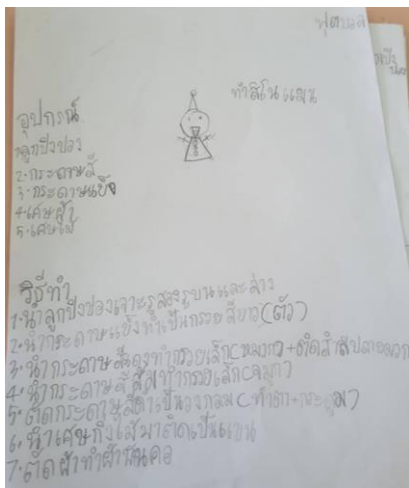 ฟุตบอล
ทำสโนแมน
อุปกรณ์
1.ลูกปิงปอง
2.กระดาษสี
3.กระดาษแข็ง
4.เศษผ้า
5.เศษไม้
วิธีทำ
1.นำลูกปิงปองเจาะรูสองรูบนและล่าง
2.นำกระดาษแข็งทำเป็นกรวยสีขาว(ตัว)
3.นำกระดาษสีแดงทำกรวยเล็ก(หมวก)+ติดสำลีปลายหมวก
4.นำกระดาษสีส้มทำกรวยเล็ก(จมูก)
5.ตัดกระดาษสีดำเป็นวงกลม(ทำตา+กระดุม)
6.นำเศษกิ่งไม้มาติดเป็นแขน
7.ตัดผ้าทำผ้าพันคอ